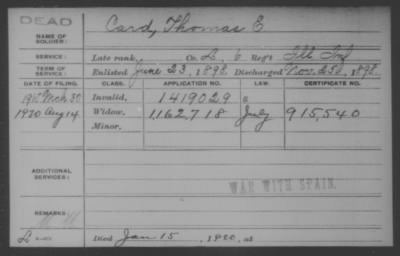 DEAD
NAME OF SOLDIER: Card, Thomas E
SERVICE: Late rank, Co. L, 6 Reg't Ill Inf
TERM OF SERVICE: Enlisted June 23, 1898 Discharged Nov. 25, 1898
DATE OF FILING. CLASS. APPLICATION NO. LAW. CERTIFICATE NO.
Mch 30 Invalid, 1419029
1920 Aug 14 Widow, 1162718 July 915,540
Minor,
ADDITIONAL SERVICES:
WAR WITH SPAIN.
REMARKS:
Died Jan 15, 1920, at